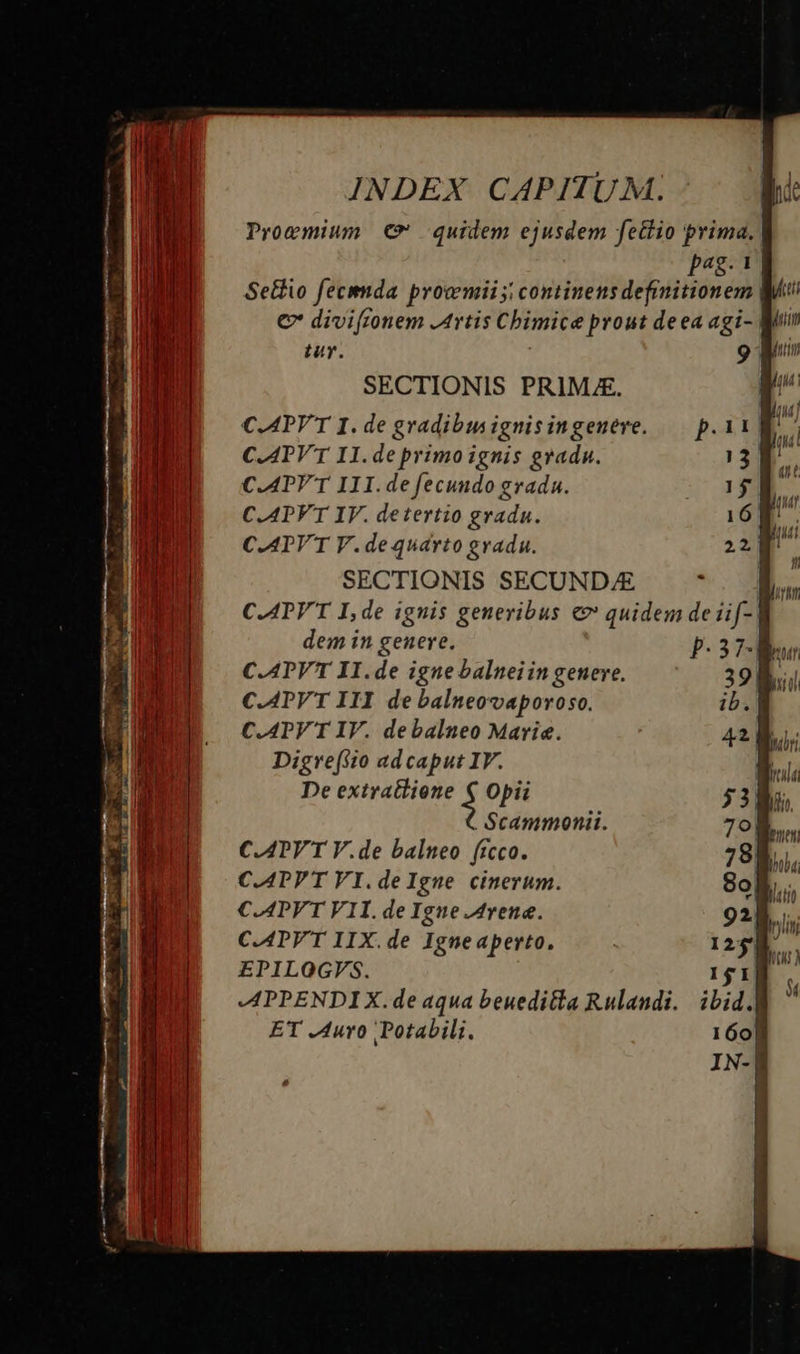 INDEX CAPITUM.
Proœmium & quidem ejusdem ſectio prima.
pag. 1
Sectio ſecunda proœmii; continens definitionem
& diviſionem Artis Chimicæ prout de ea agi-
tur. 9
SECTIONIS PRIMÆ.
CAPVT I. de gradibus ignis in genere. p. 11
CAPVT II. de primo ignis gradu. 13
CAPVT III. de ſecundo gradu. 15
CAPVT IV. de tertio gradu. 16
CAPVT V. de quarto gradu. 22
SECTIONIS SECUNDÆ
CAPVT I, de ignis generibus & quidem de iiſ-
dem in genere. p. 37
CAPVT II. de igne balnei in genere. 39
CAPVT III de balneo vaporoso. ib.
CAPVT IV. de balneo Mariæ. 42
Digreſſio ad caput IV.
De extractione { Opii 53
Scammonii. 70
CAPVT V. de balneo ſicco. 78
CAPVT VI. de Igne cinerum. 80
CAPVT VII. de Igne Arenæ. 92
CAPVT IIX. de Igne aperto. 125
EPILOGVS. 151
APPENDIX. de aqua benedicta Rulandi. ibid.
ET Auro Potabili. 160
IN-